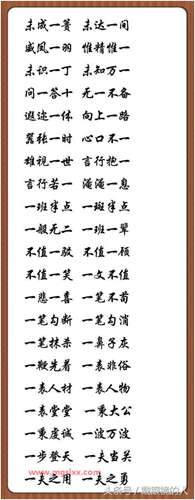 未成一篑 未达一间
威凤一羽 惟精惟一
未识一丁 未知万一
问一答十 无一不备
遐迩一体 向上一路
嚣张一时 心口不一
雄视一世 言行抱一
言行若一 淹淹一息
一班半点 一斑半点
一般无二 一班一辈
不值一驳 不值一顾
不值一笑 一文不值
一悲一喜 一笔不苟
一笔勾断 一笔勾消
一笔抹杀 一鼻子灰
一鞭先着 一表非俗
一表人材 一表人物
一表堂堂 一秉大公
一秉虔诚 一波万波
一步登天 一夫当关
一夫之用 一夫之勇
www.mgsjxx.com
头条号